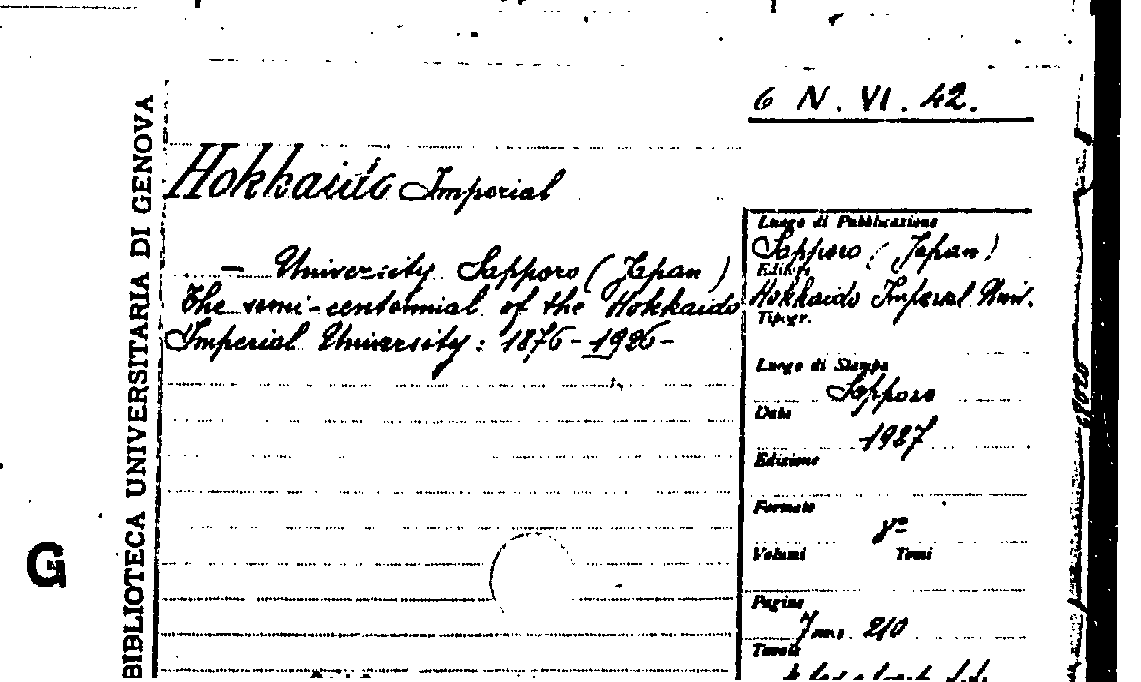 6 N. VI. 42.
BIBLIOTECA UNIVERSITARIA DI GENOVA
G
Hokkaido Imperial
— University Sapporo (Japan)
The semi-centennial of the Hokkaido
Imperial University: 1876-1926-
Luogo di Pubblicazione
Sapporo (Japan)
Editore
Hokkaido Imperal Univ.
Tipogr.
Luogo di Stampa
Sapporo
Data
1927
Edizione
Formato
8º
Volumi Tomi
Pagine
210
Tavole